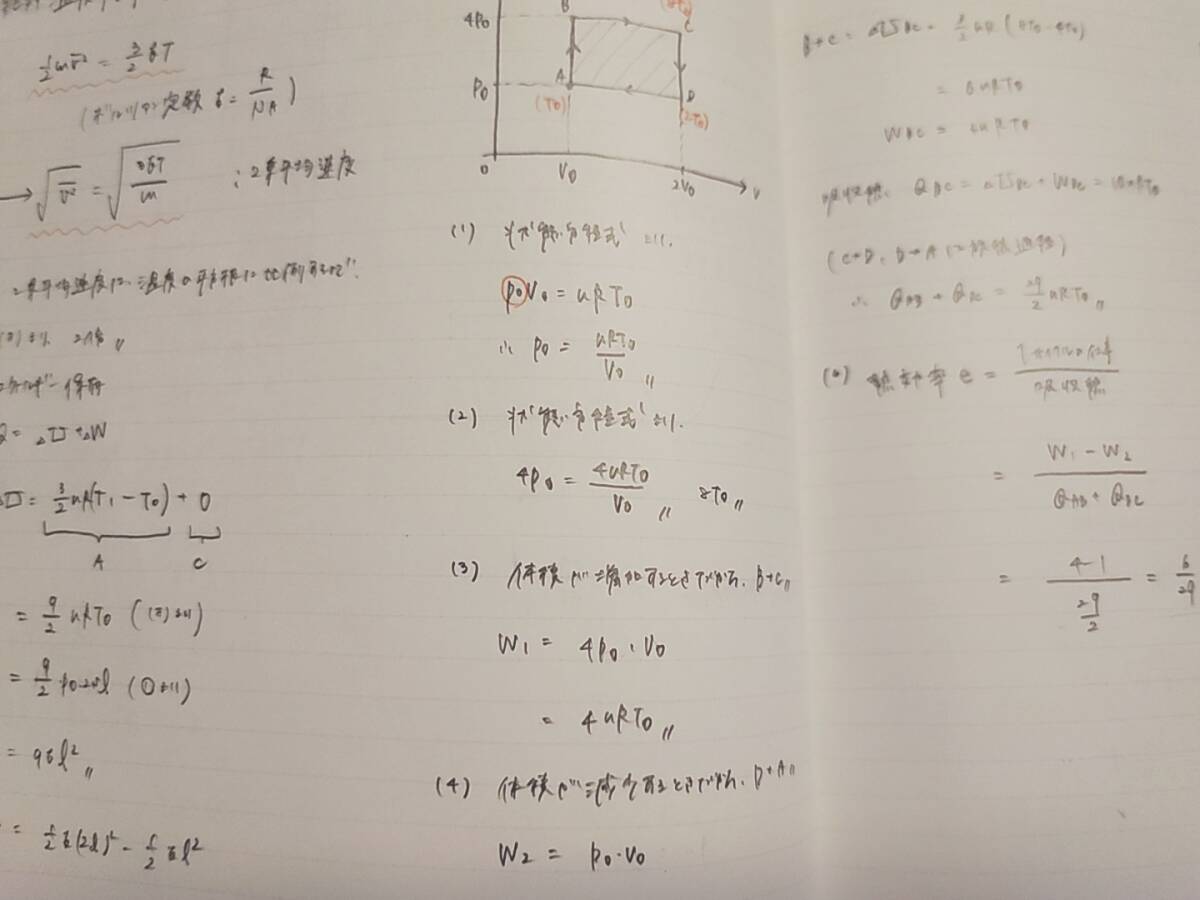 ½mv̄² = 3/2 kT
(ボルツマン定数 k = R/NA)
→ √v̄² = √(3kT/m) : 2乗平均速度
2乗平均速度は、温度の平方根に比例するので、
より、2倍〃
Q = ΔU + ΔW
ΔU = 3/2 nR(T₁ - T₀) + 0
A C
= 9/2 nRT₀
= 9/2 p₀
= 9kl²〃
= ½k(2l)² - ½kl²
4p₀ B C
p₀ A D
(T₀) (2T₀)
0 V₀ 2V₀ V
(1) 状態方程式より、
p₀V₀ = nRT₀
∴ p₀ = nRT₀/V₀〃
(2) 状態方程式より、
4p₀ = 4nRT₀/V₀〃 8T₀〃
(3) 体積が増加するときだから、B→C〃
W₁ = 4p₀・V₀
= 4nRT₀〃
(4) 体積が減少するときだから、D→A〃
W₂ = p₀・V₀
B→C = ΔUBC = 3/2 nR(8T₀ - 4T₀)
= 6nRT₀
WBC = 4nRT₀
吸収熱、QBC = ΔUBC + WBC = 10nRT₀
(C→D, D→Aは放熱過程)
∴ QAB + QBC = 29/2 nRT₀〃
熱効率 e = 1サイクルの仕事/吸収熱
= (W₁ - W₂)/(QAB + QBC)
= (4-1)/(29/2) = 6/29